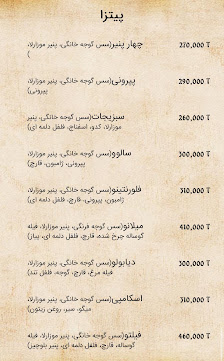 پیتزا
چهار پنیر(سس گوجه خانگی، پنیر موزارلا، 270,000 T
(
پپرونی(سس گوجه خانگی، پنیر موزارلا، 290,000 T
پپرونی)
سبزیجات(سس گوجه خانگی، پنیر 260,000 T
موزارلا، کدو، اسفناج، فلفل دلمه ای)
سالوو(سس گوجه خانگی، پنیر موزارلا، 300,000 T
پپرونی، ژامبون، قارچ)
فلورنتینو(سس گوجه خانگی، پنیر موزارلا، 310,000 T
ژامبون، پپرونی، قارچ، فلفل دلمه ای)
میلانو(سس گوجه فرنگی، پنیر موزارلا، فیله 410,000 T
گوساله چرخ شده، قارچ، فلفل دلمه ای، پیاز)
دیابولو(سس گوجه خانگی، پنیر موزارلا، 300,000 T
فیله مرغ، قارچ، گوجه، فلفل تند)
اسکامپی(سس گوجه خانگی، پنیر موزارلا، 310,000 T
میگو، سیر، روغن زیتون)
فیلتو(سس گوجه خانگی، پنیر موزارلا، فیله 460,000 T
گوساله، قارچ، فلفل دلمه ای، پنیر بلوچیز)